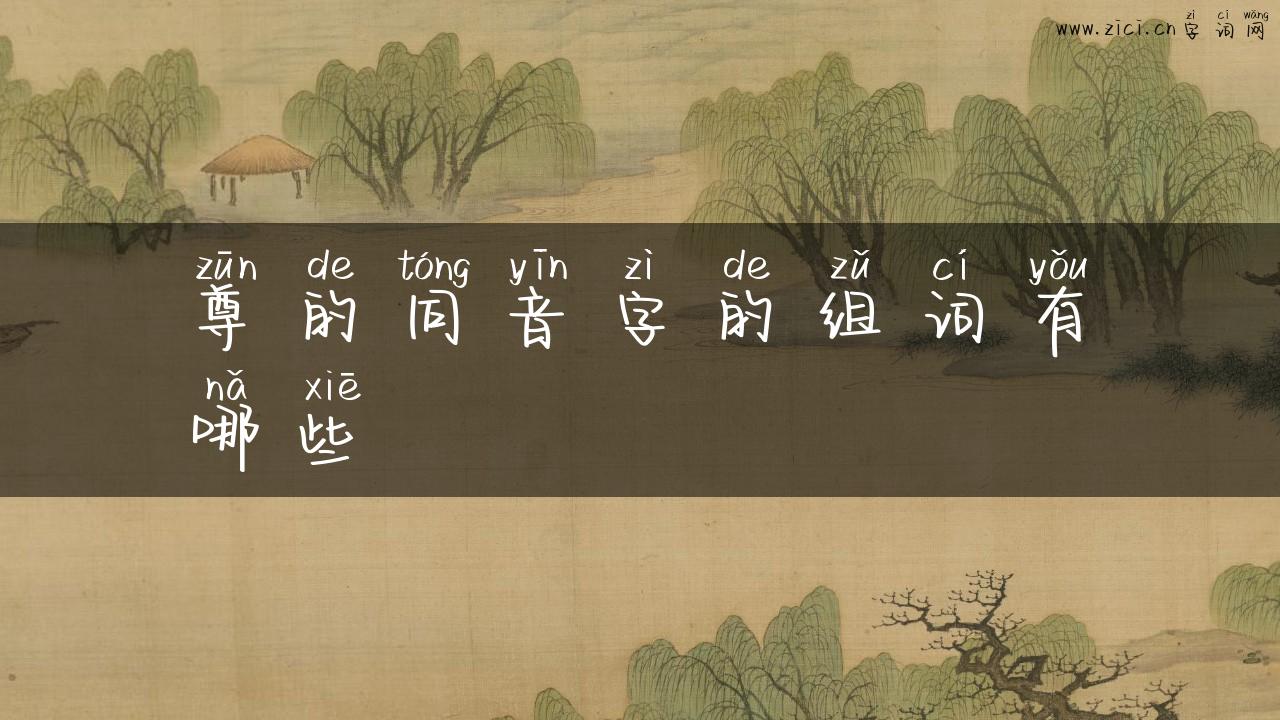 zì cí wǎng
www.zici.cn 字 词 网
zūn de tóng yīn zì de zǔ cí yǒu
尊 的 同 音 字 的 组 词 有
nǎ xiē
哪 些